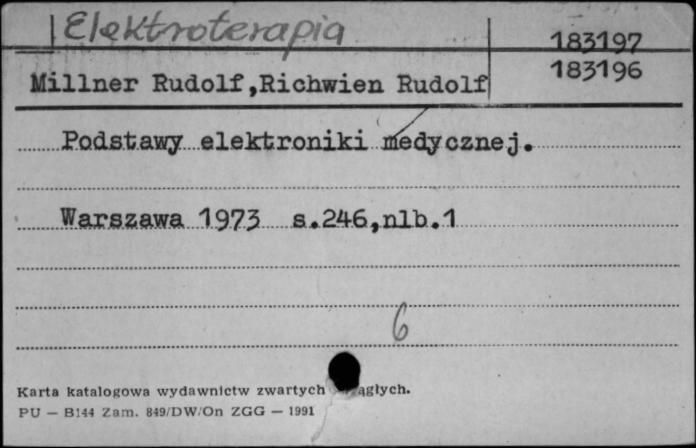 Elektroterapia
183197
183196
Millner Rudolf,Richwien Rudolf
Podstawy elektroniki medycznej.
Warszawa 1973 s.246,nlb.1
6
Karta katalogowa wydawnictw zwartych
PU — B144 Zam. 849/DW/On ZGG — 1991